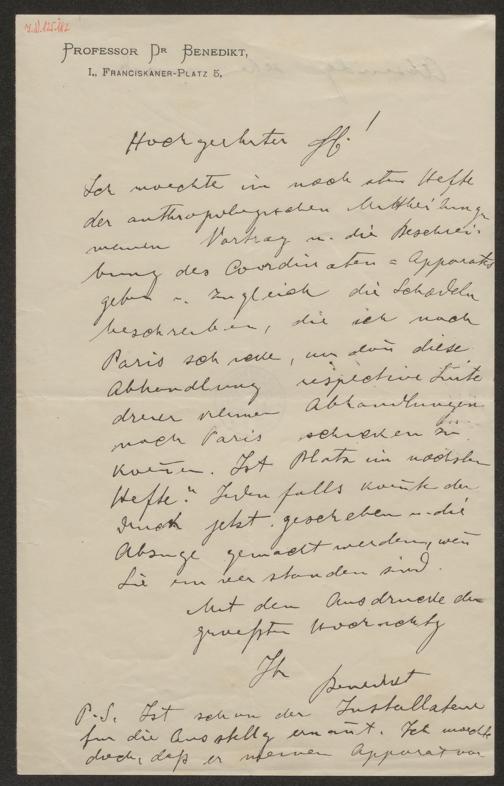 I.N. 125.182
PROFESSOR DR BENEDIKT,
I., FRANCISKANER-PLATZ 5.
Hochgeehrter H.!
Ich moechte im nach sten Hefte
der anthropologischen Mittheilungn
meinen Vortrag u. die Beschrei-
bung des Coordinaten = Apparats
geben u. zugleich die Schädeln
beschreiben, die ich nach
Paris schicke, um dañ diese
Abhandlung respective Suite
dreier kleiner Abhandlungen
nach Paris schicken zu
koeñen. Ist Platz im nächsten
Hefte? Jeden falls koñte der
Druck jetzt geschehen u. die
Abzuge gemacht werden, weñ
Sie ein ver standen sind.
Mit dem Ausdrucke der
groeßten Hochachtg
Ihr
Benedikt
P.S. Ist schon der Installateur
fur die Ausstellg ernañt. Ich moechte
doch, daß er meinen Apparat vor